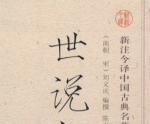 新注今译中国古典名
（南朝 宋）刘义庆 编撰 陈
世说